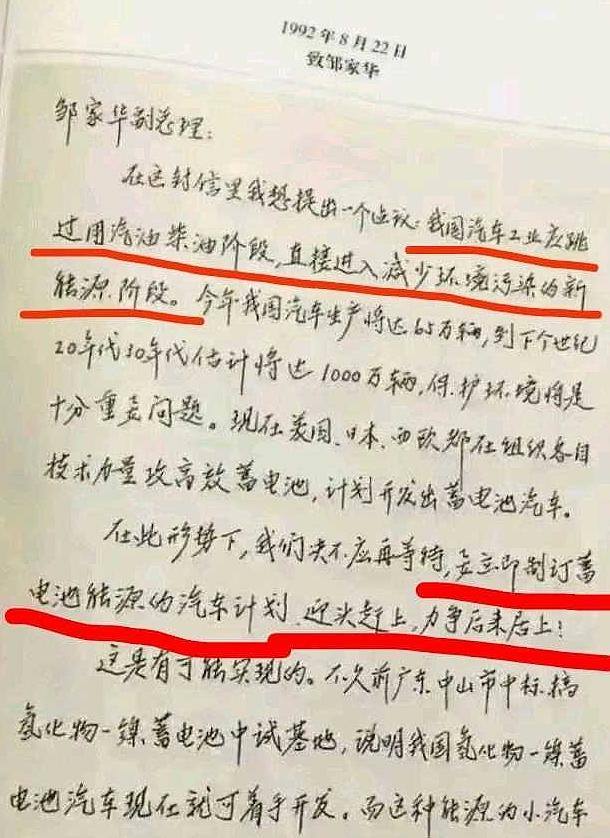 1992年8月22日
致邹家华
邹家华副总理:
在这封信里我想提出一个建议:我国汽车工业应跳
过用汽油柴油阶段,直接进入减少环境污染的新
能源阶段。今年我国汽车生产将达65万辆,到下个世纪
20年代30年代估计将达1000万辆,保护环境将是
十分重要问题。现在美国、日本、西欧都在组织各自
技术力量攻高效蓄电池,计划开发出蓄电池汽车。
在此形势下,我们决不应再等待,要立即制订蓄
电池能源的汽车计划,迎头赶上,力争后来居上!
这是有可能实现的。不久前广东中山市中标搞
氢化物—镍蓄电池中试基地,说明我国氢化物—镍蓄
电池汽车现在就可着手开发。而这种能源的小汽车